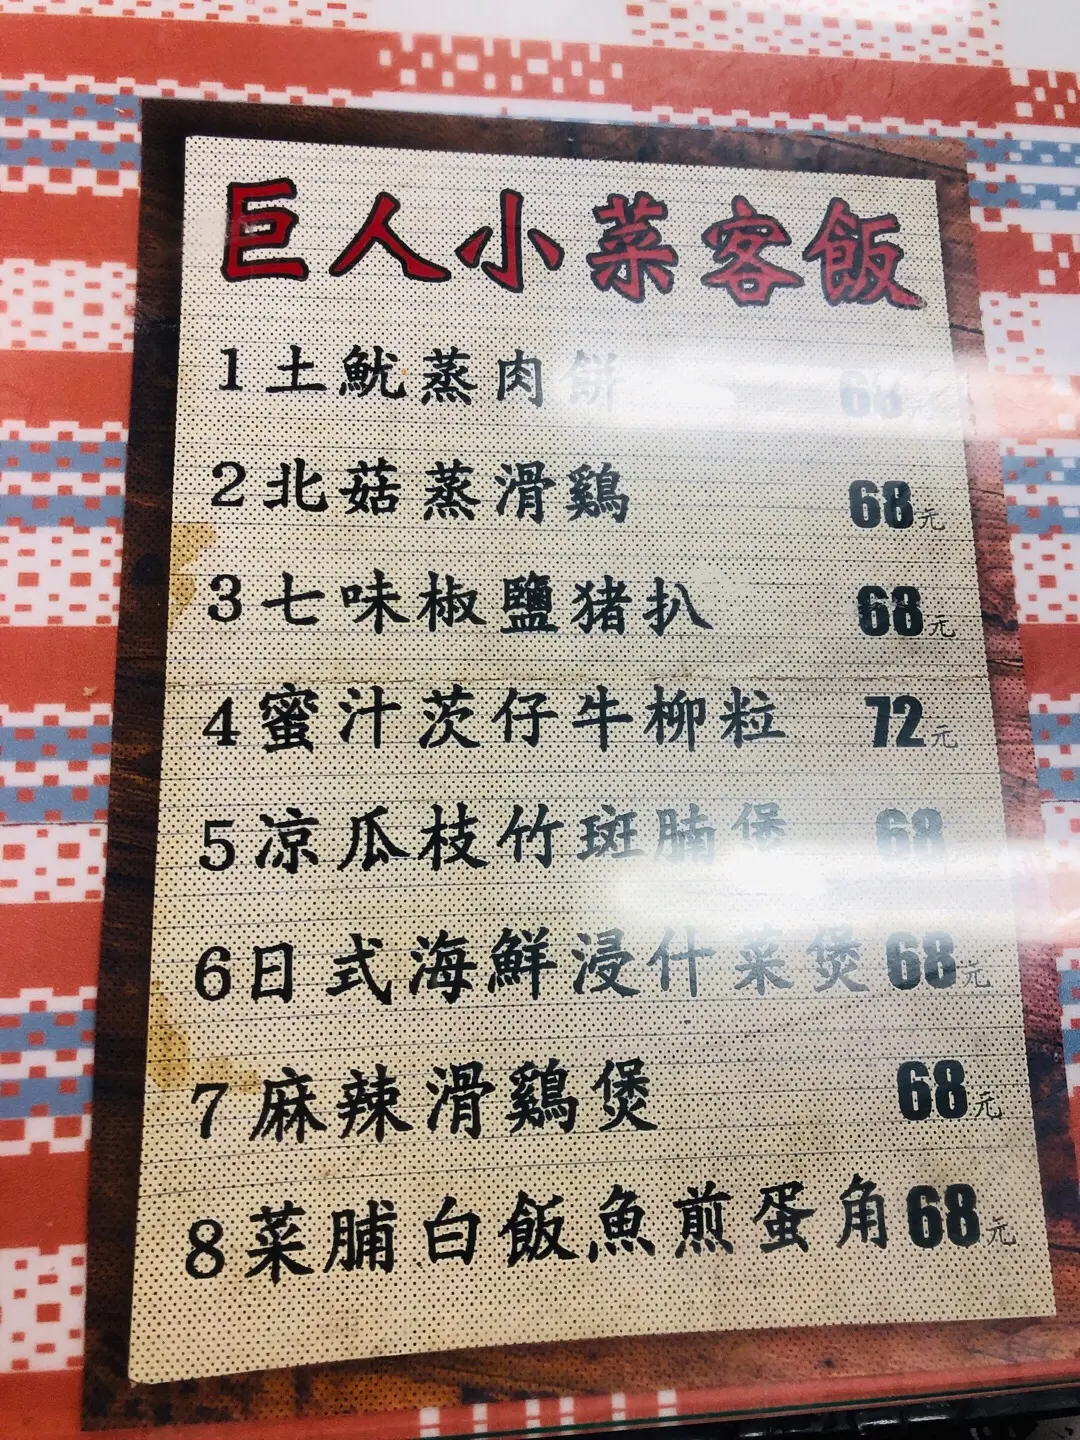 巨人小菜客飯
1土魷蒸肉餅 68元
2北菇蒸滑鷄 68元
3七味椒鹽猪扒 68元
4蜜汁茨仔牛柳粒 72元
5凉瓜枝竹斑腩煲 68元
6日式海鮮浸什菜煲 68元
7麻辣滑鷄煲 68元
8菜脯白飯魚煎蛋角 68元